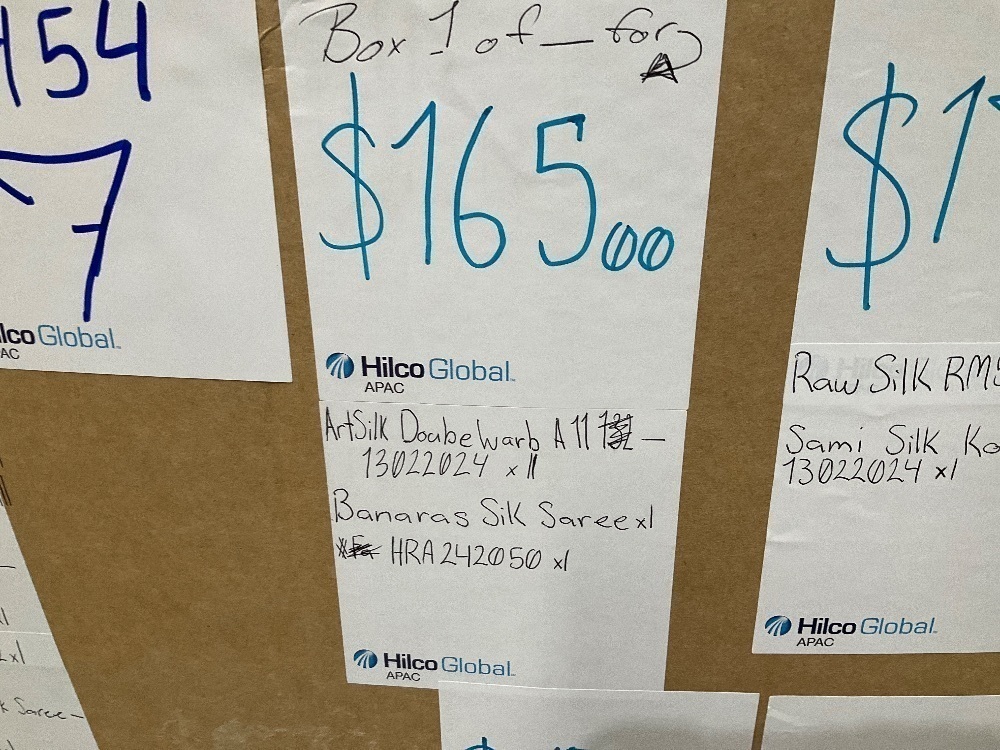 154
7
lco Global.
AC
Box 1 of _ for
$165.00
Hilco Global.
APAC
ArtSilk Doubelwarb A 11 —
13022024 x 11
Banaras Sik Saree x1
HRA242050 x1
Hilco Global.
APAC
$1
Raw Silk RMS
Sami Silk Ko
13022024 x1
Hilco Global.
APAC
x1
k Saree —